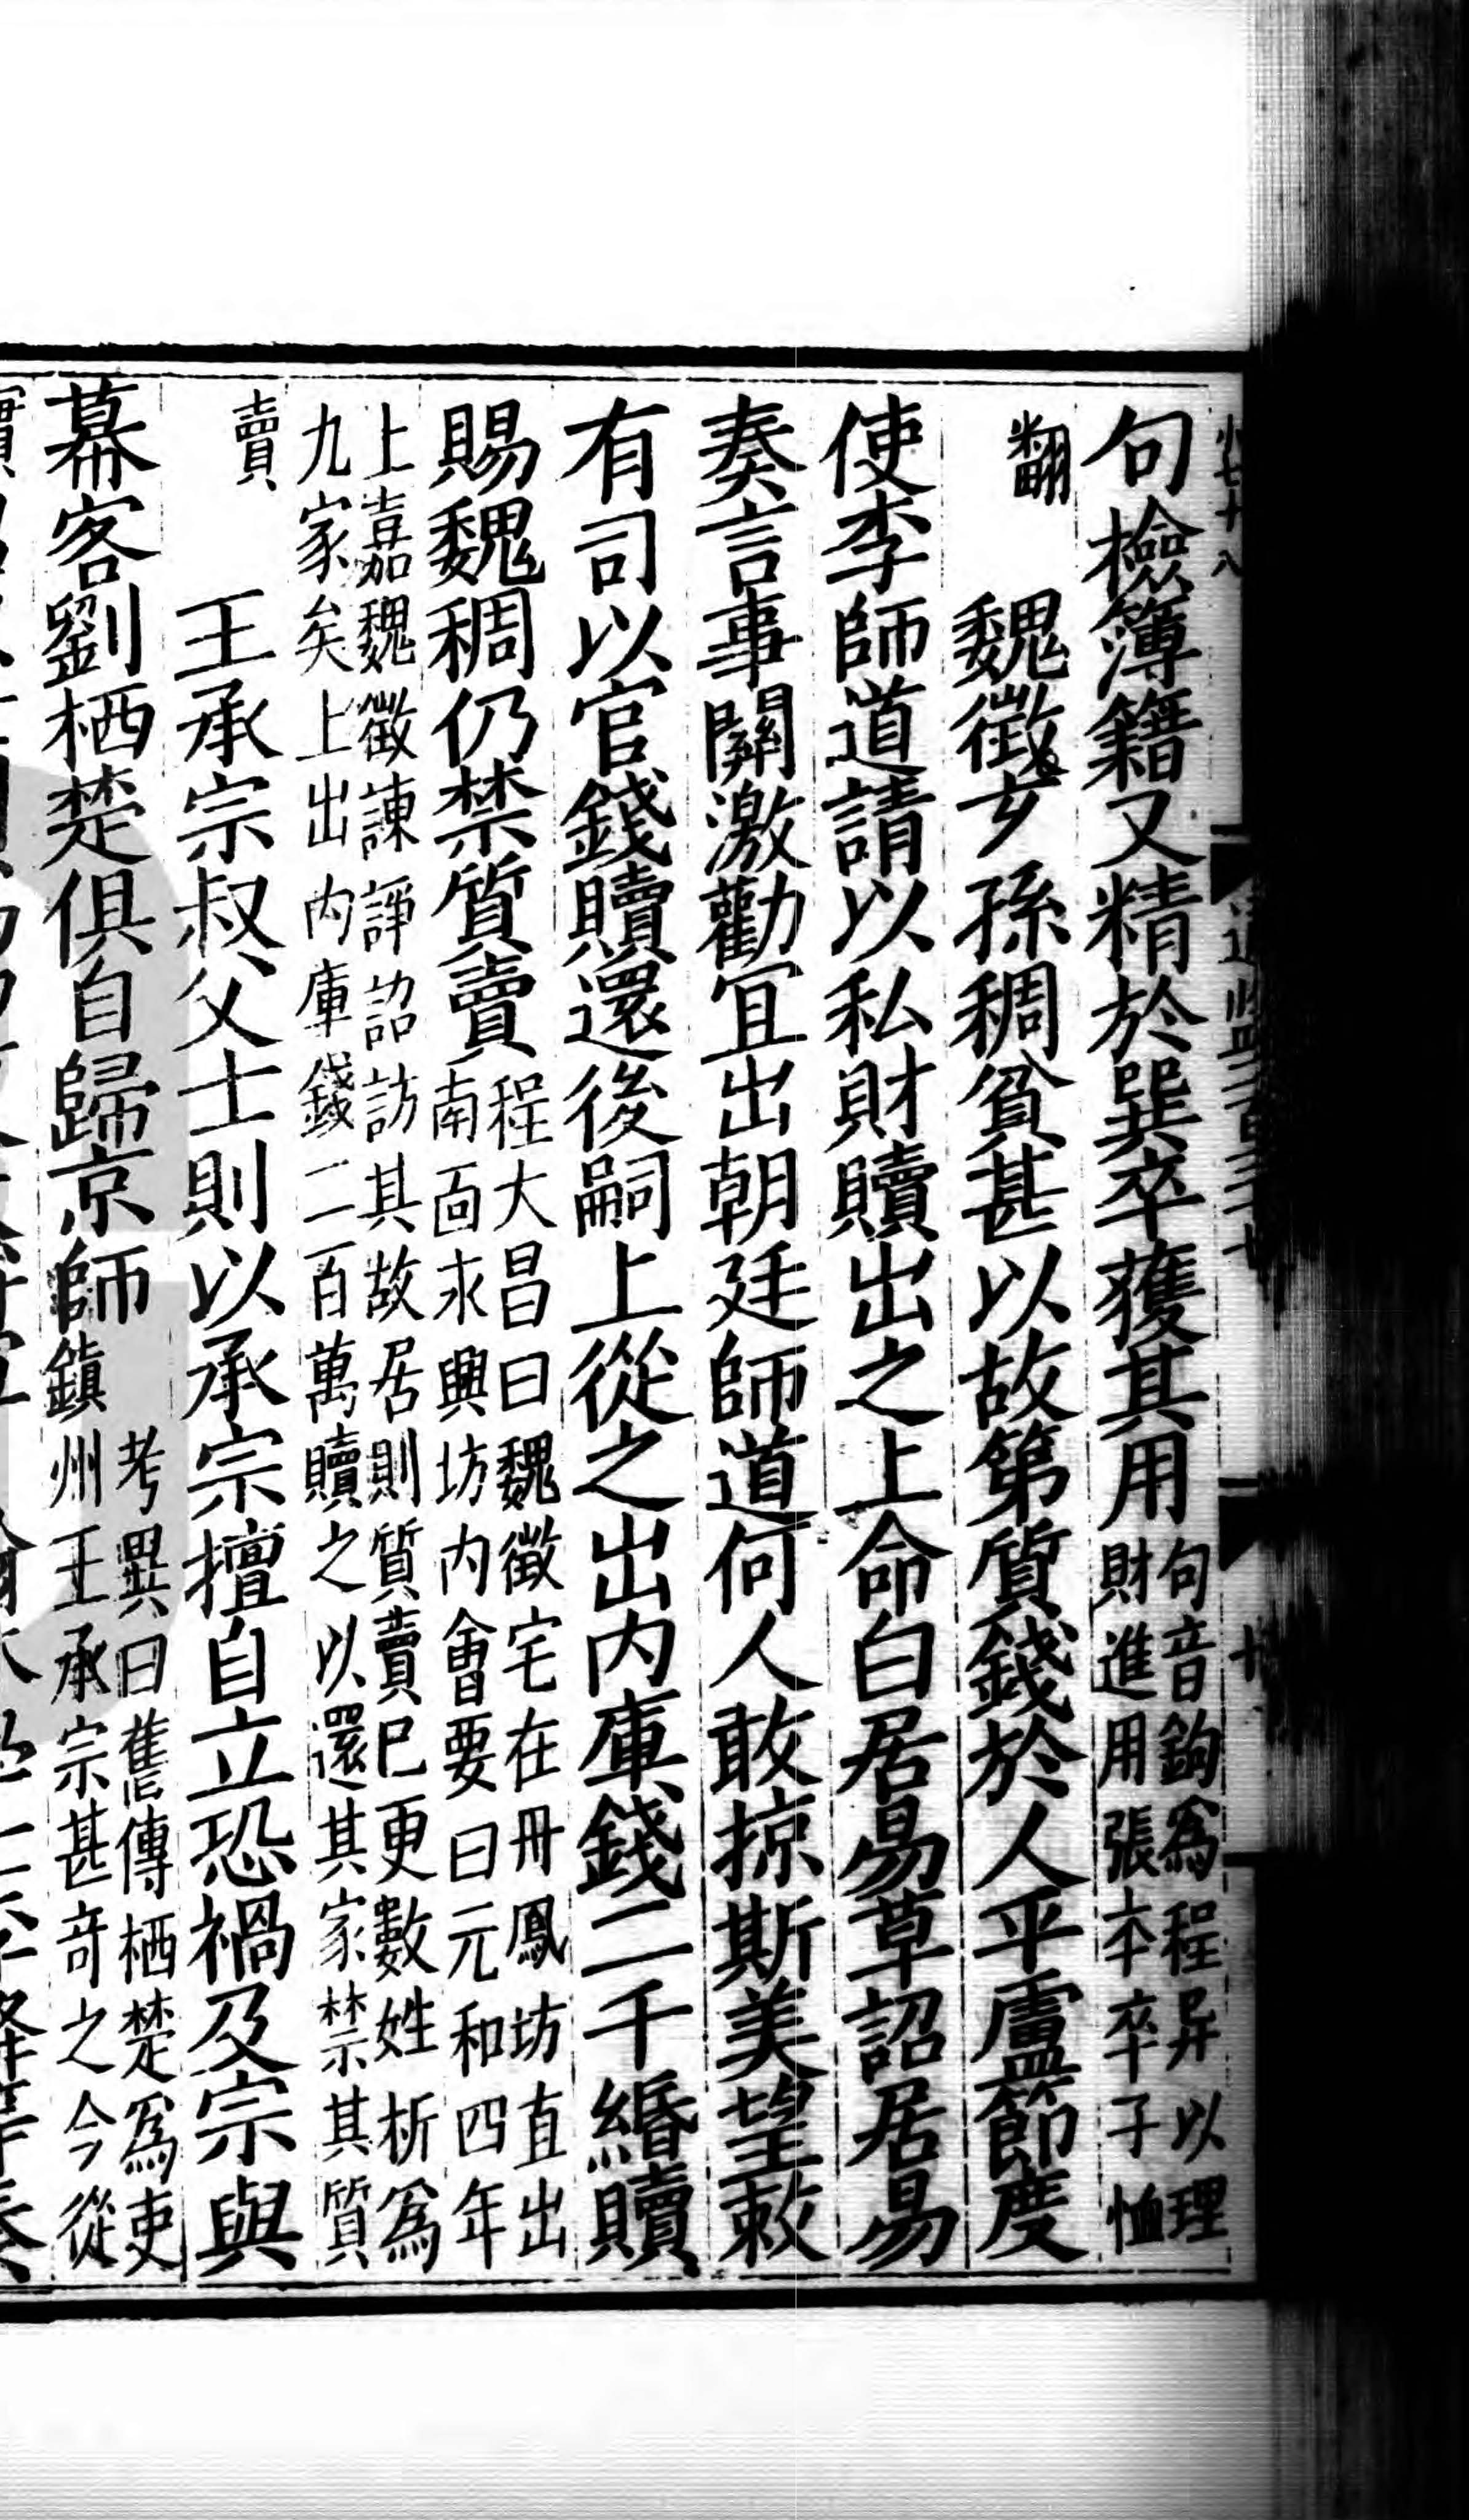 句檢簿籍又精於巽卒獲其用句音鉤爲程异以理財進用張本卒子恤
翻　魏徵玄孫稠貧甚以故第質錢於人平盧節度
使李師道請以私財贖出之上命白居易草詔居易
奏言事關激勸宜出朝廷師道何人敢掠斯美望敕
有司以官錢贖還後嗣上從之出内庫錢二千緡贖
賜魏稠仍禁質賣程大昌曰魏徵宅在丹鳳坊直出南面永興坊内會要曰元和四年
上嘉魏徵諫諍詔訪其故居則質賣已更數姓析爲
九家矣上出内庫錢二百萬贖之以還其家禁其質
賣　王承宗叔父士則以承宗擅自立恐禍及宗與
幕客劉栖楚俱自歸京師考異曰舊傳栖楚爲吏鎮州王承宗甚奇之今從